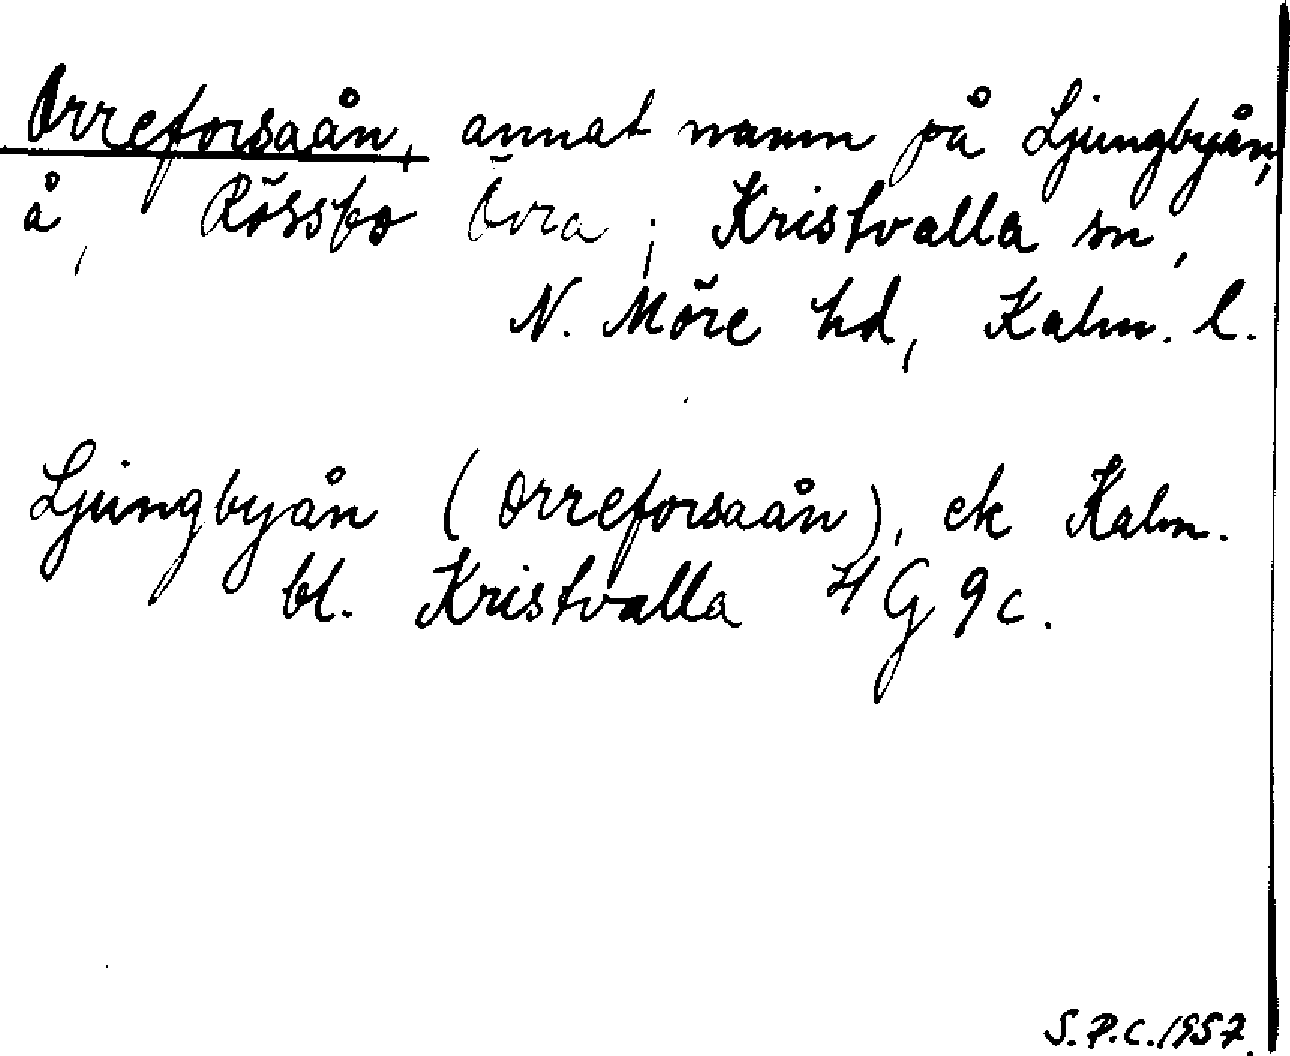 Orreforsaån, annat namn på Ljungbyån,
å, Rössbo Övra; Kristvalla sn,
N. Möre hd, Kalm. l.
Ljungbyån (Orreforsaån), ek Kalm.
bl. Kristvalla 4 G 9 c.
S.P.C. 1957.